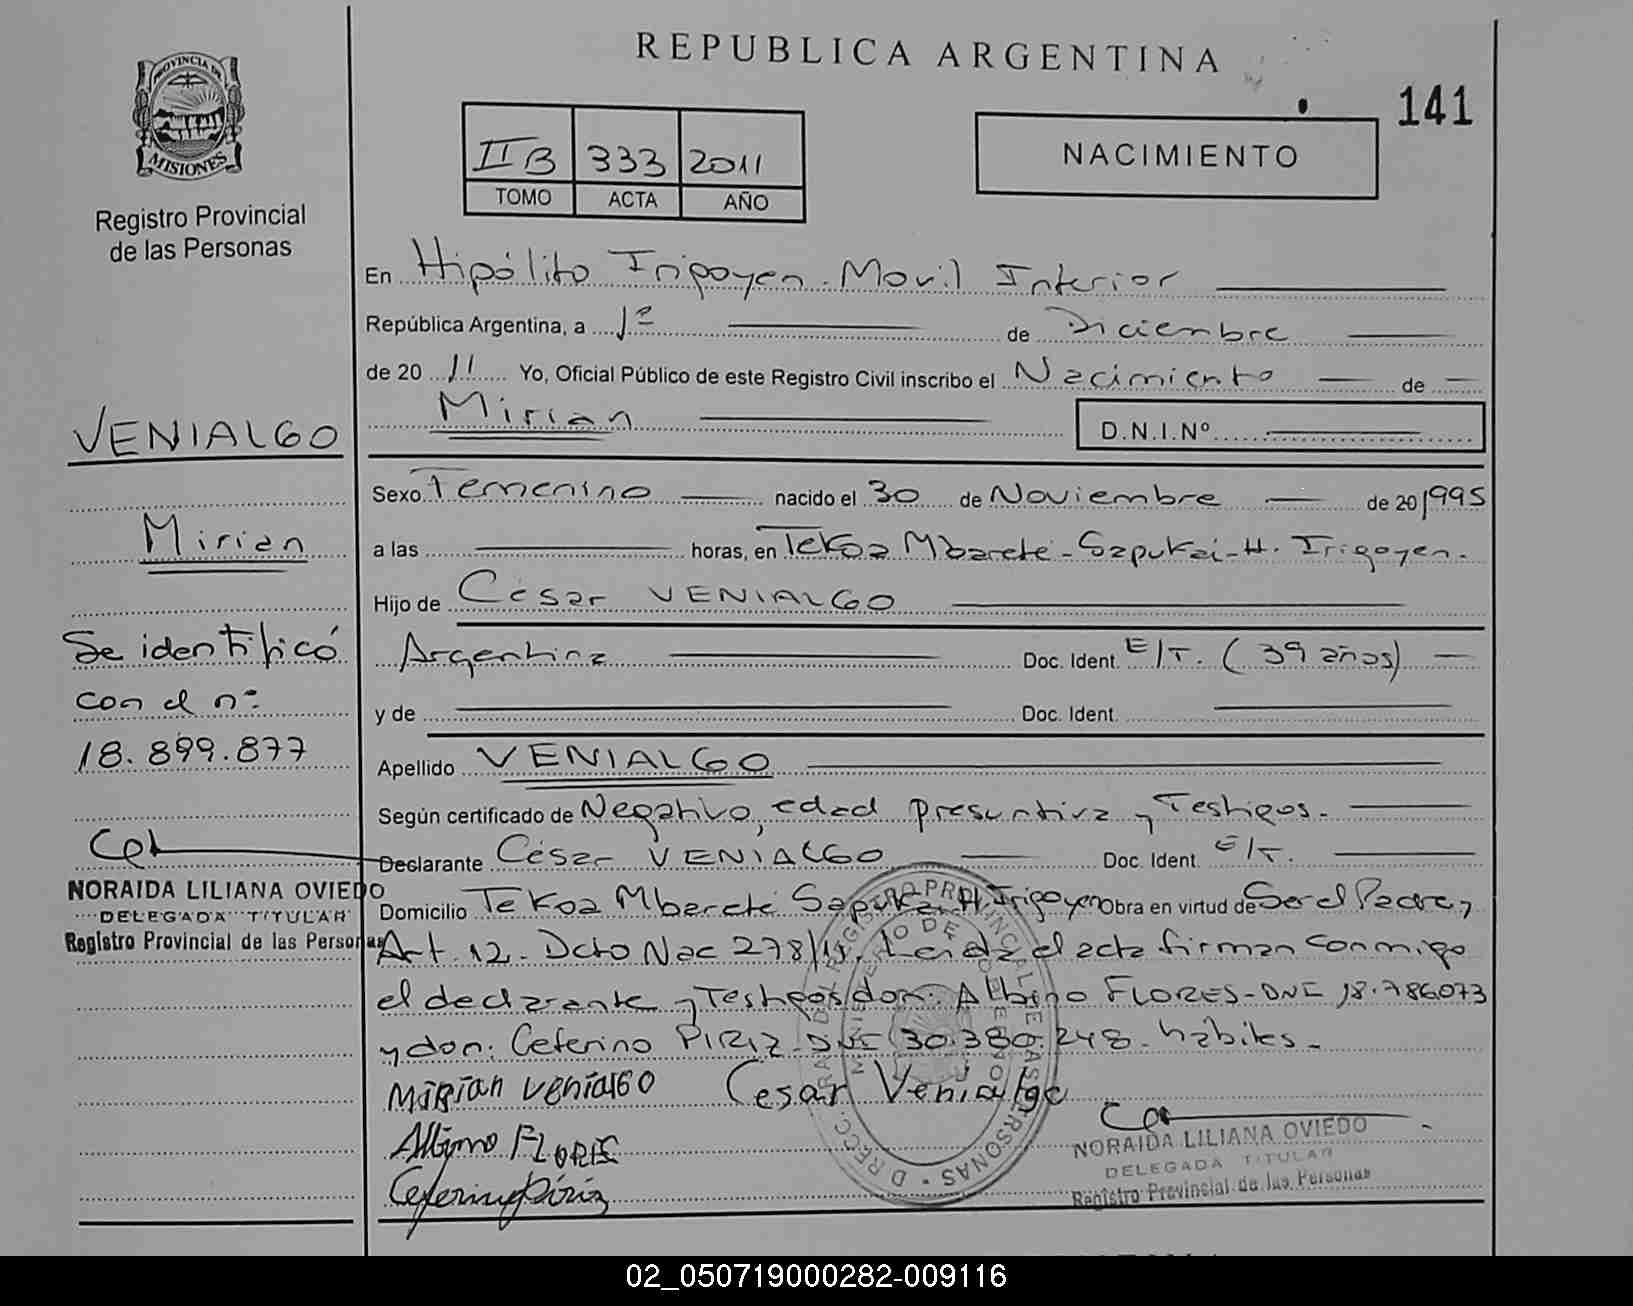 REPUBLICA ARGENTINA
141
PROVINCIA DE
MISIONES
Registro Provincial
de las Personas
II B 333 2011
TOMO ACTA AÑO
NACIMIENTO
En Hipólito Irigoyen. Movil Interior
República Argentina, a 1º de Diciembre
de 20 11 Yo, Oficial Público de este Registro Civil inscribo el Nacimiento de
Mirian
D.N.I.Nº
VENIALGO
Mirian
Se identificó
con el nº
18.899.877
NORAIDA LILIANA OVIEDO
DELEGADA TITULAR
Registro Provincial de las Personas
Sexo Femenino nacido el 30 de Noviembre de 20 1995
a las horas, en Tekoa Mbareté - Sapukai - H. Irigoyen.
Hijo de César VENIALGO
Argentina Doc. Ident. E/T. (39 años)
y de Doc. Ident.
Apellido VENIALGO
Según certificado de Negativo, edad presuntiva y Testigos.
Declarante César VENIALGO Doc. Ident. E/T.
Domicilio Tekoa Mbareté Sapukai H. Irigoyen Obra en virtud de Ser el Padre,
Art. 12. Dcto Nac 278/11. Leida el acta firman conmigo
el declarante y Testigos don: Albino FLORES - DNI 18.786.073
y don: Ceferino PIRIZ - DNI 30.380.248. hábiles.
MiRian VeniaLGO Cesar Venialgo
Albino FLORES
Ceferino Píriz
NORAIDA LILIANA OVIEDO
DELEGADA TITULAR
Registro Provincial de las Personas
02_050719000282-009116